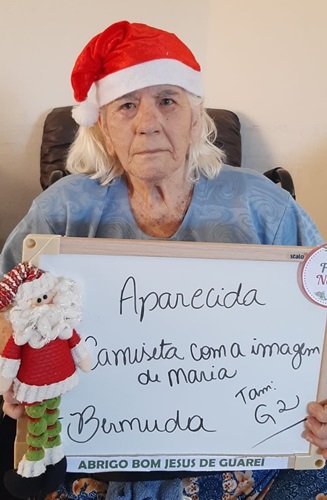 stalo
Aparecida
Camiseta com a imagem
de Maria
Tam:
G2
Bermuda
ABRIGO BOM JESUS DE GUAREÍ